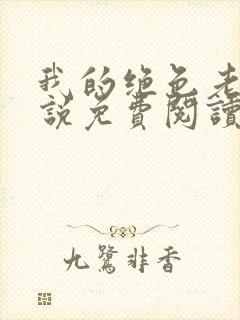 我的绝色老
説免費閱讀
九鷺非香